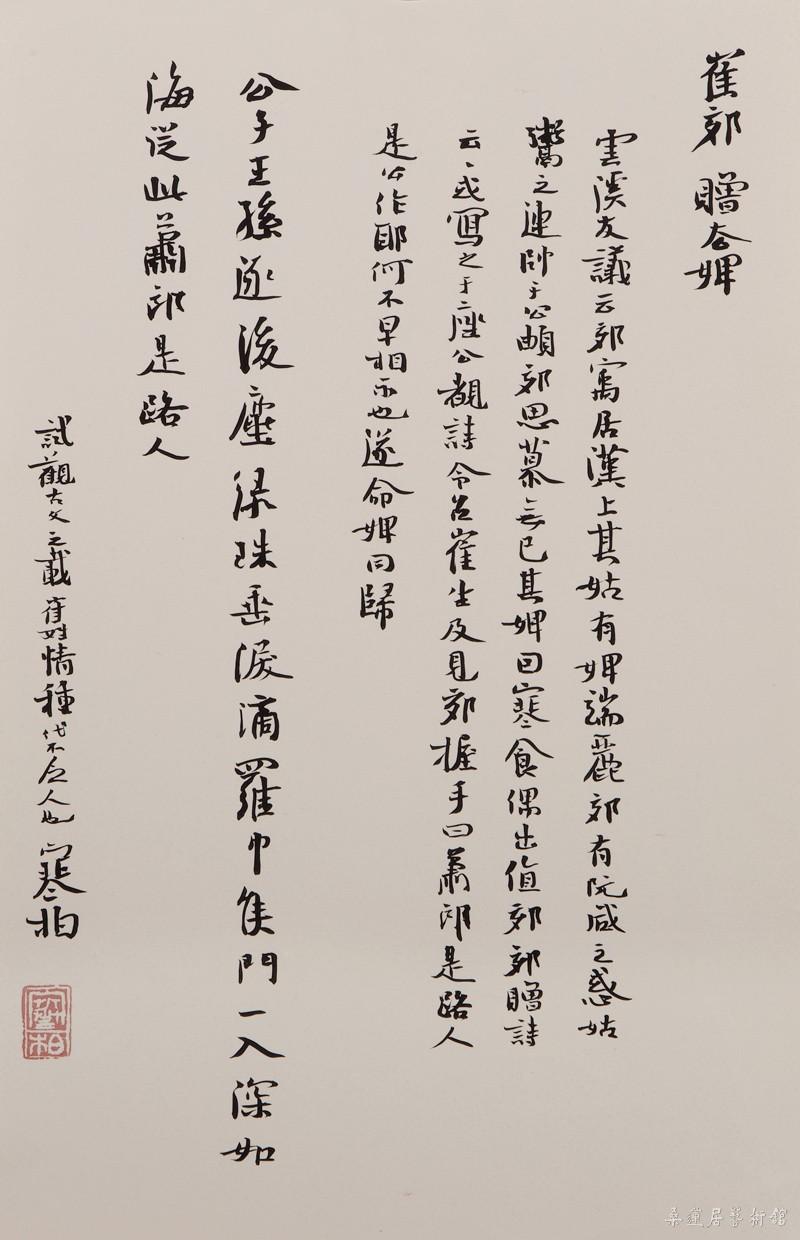 崔郊 贈去婢
雲溪友議云郊寓居漢上其姑有婢端麗郊有阮咸之惑姑
鬻之連帥于公頔郊思慕無已其婢因寒食偶出值郊郊贈詩
云云或寫之于座公覩詩令召崔生及見郊握手曰蕭郎是路人
是公作耶何不早相示也遂命婢同歸
公子王孫逐後塵綠珠垂淚滴羅巾侯門一入深如
海從此蕭郎是路人
試觀古文之載崔姓情種代不乏人也 寒柏
寒柏
桑蓮居藝術館